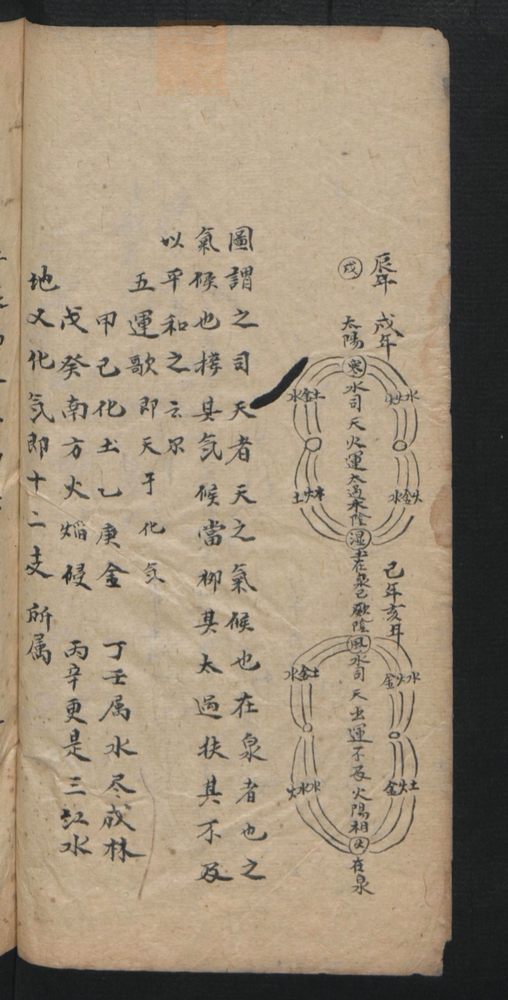 辰年 戌年
戌
太陽寒水司天火運太過太陰湿土在泉
水金土
火土水
土火木
水金火
己年亥年
厥陰風水司天土運不及火陽相火在泉
水金土
金火水
火水木
金火土
圖謂之司天者天之氣候也在泉者也之
氣候也擇其気候當抑其太過扶其不及
以平和之云尔
五運歌 即天干化気
甲己化土乙庚金 丁壬属水尽成林
戊癸南方火焰侵 丙辛更是三江水
地又化気即十二支所属